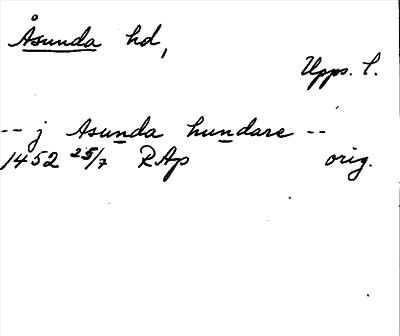 Åsunda hd,
Upps. l.
-- j Asunda hundare --
1452 25/7 RAp orig.